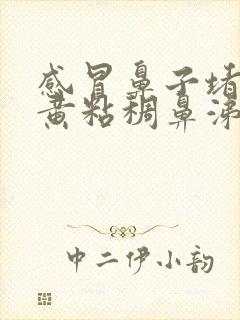 感冒鼻子堵
黄粘稠鼻涕
中二伊小韵